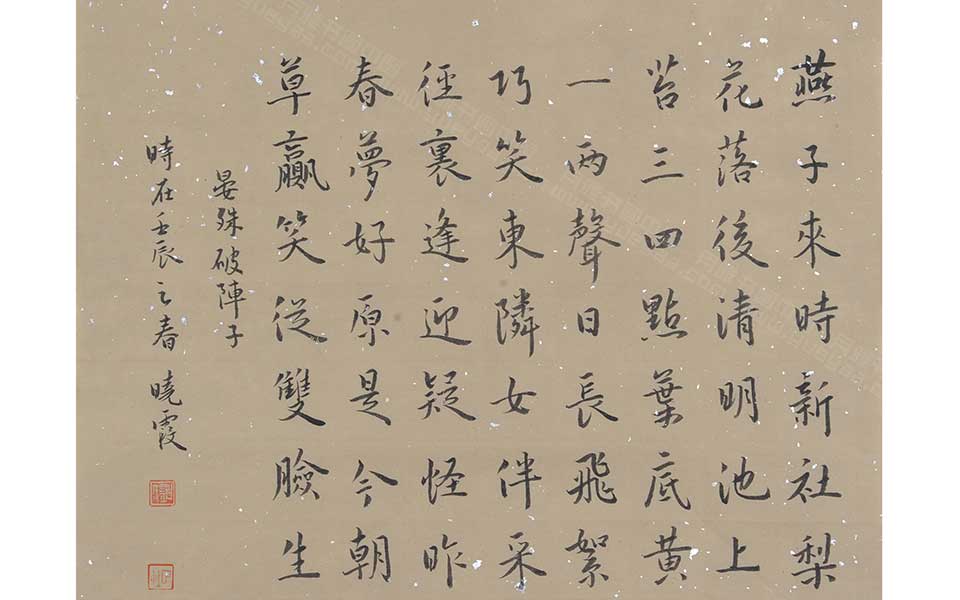 燕子來時新社梨
花落後清明池上
苔三四點葉底黃
一兩聲日長飛絮
巧笑東隣女伴采
徑裏逢迎疑怪昨
春夢好原是今朝
草贏笑從雙臉生
晏殊破陣子
時在壬辰之春 曉霞